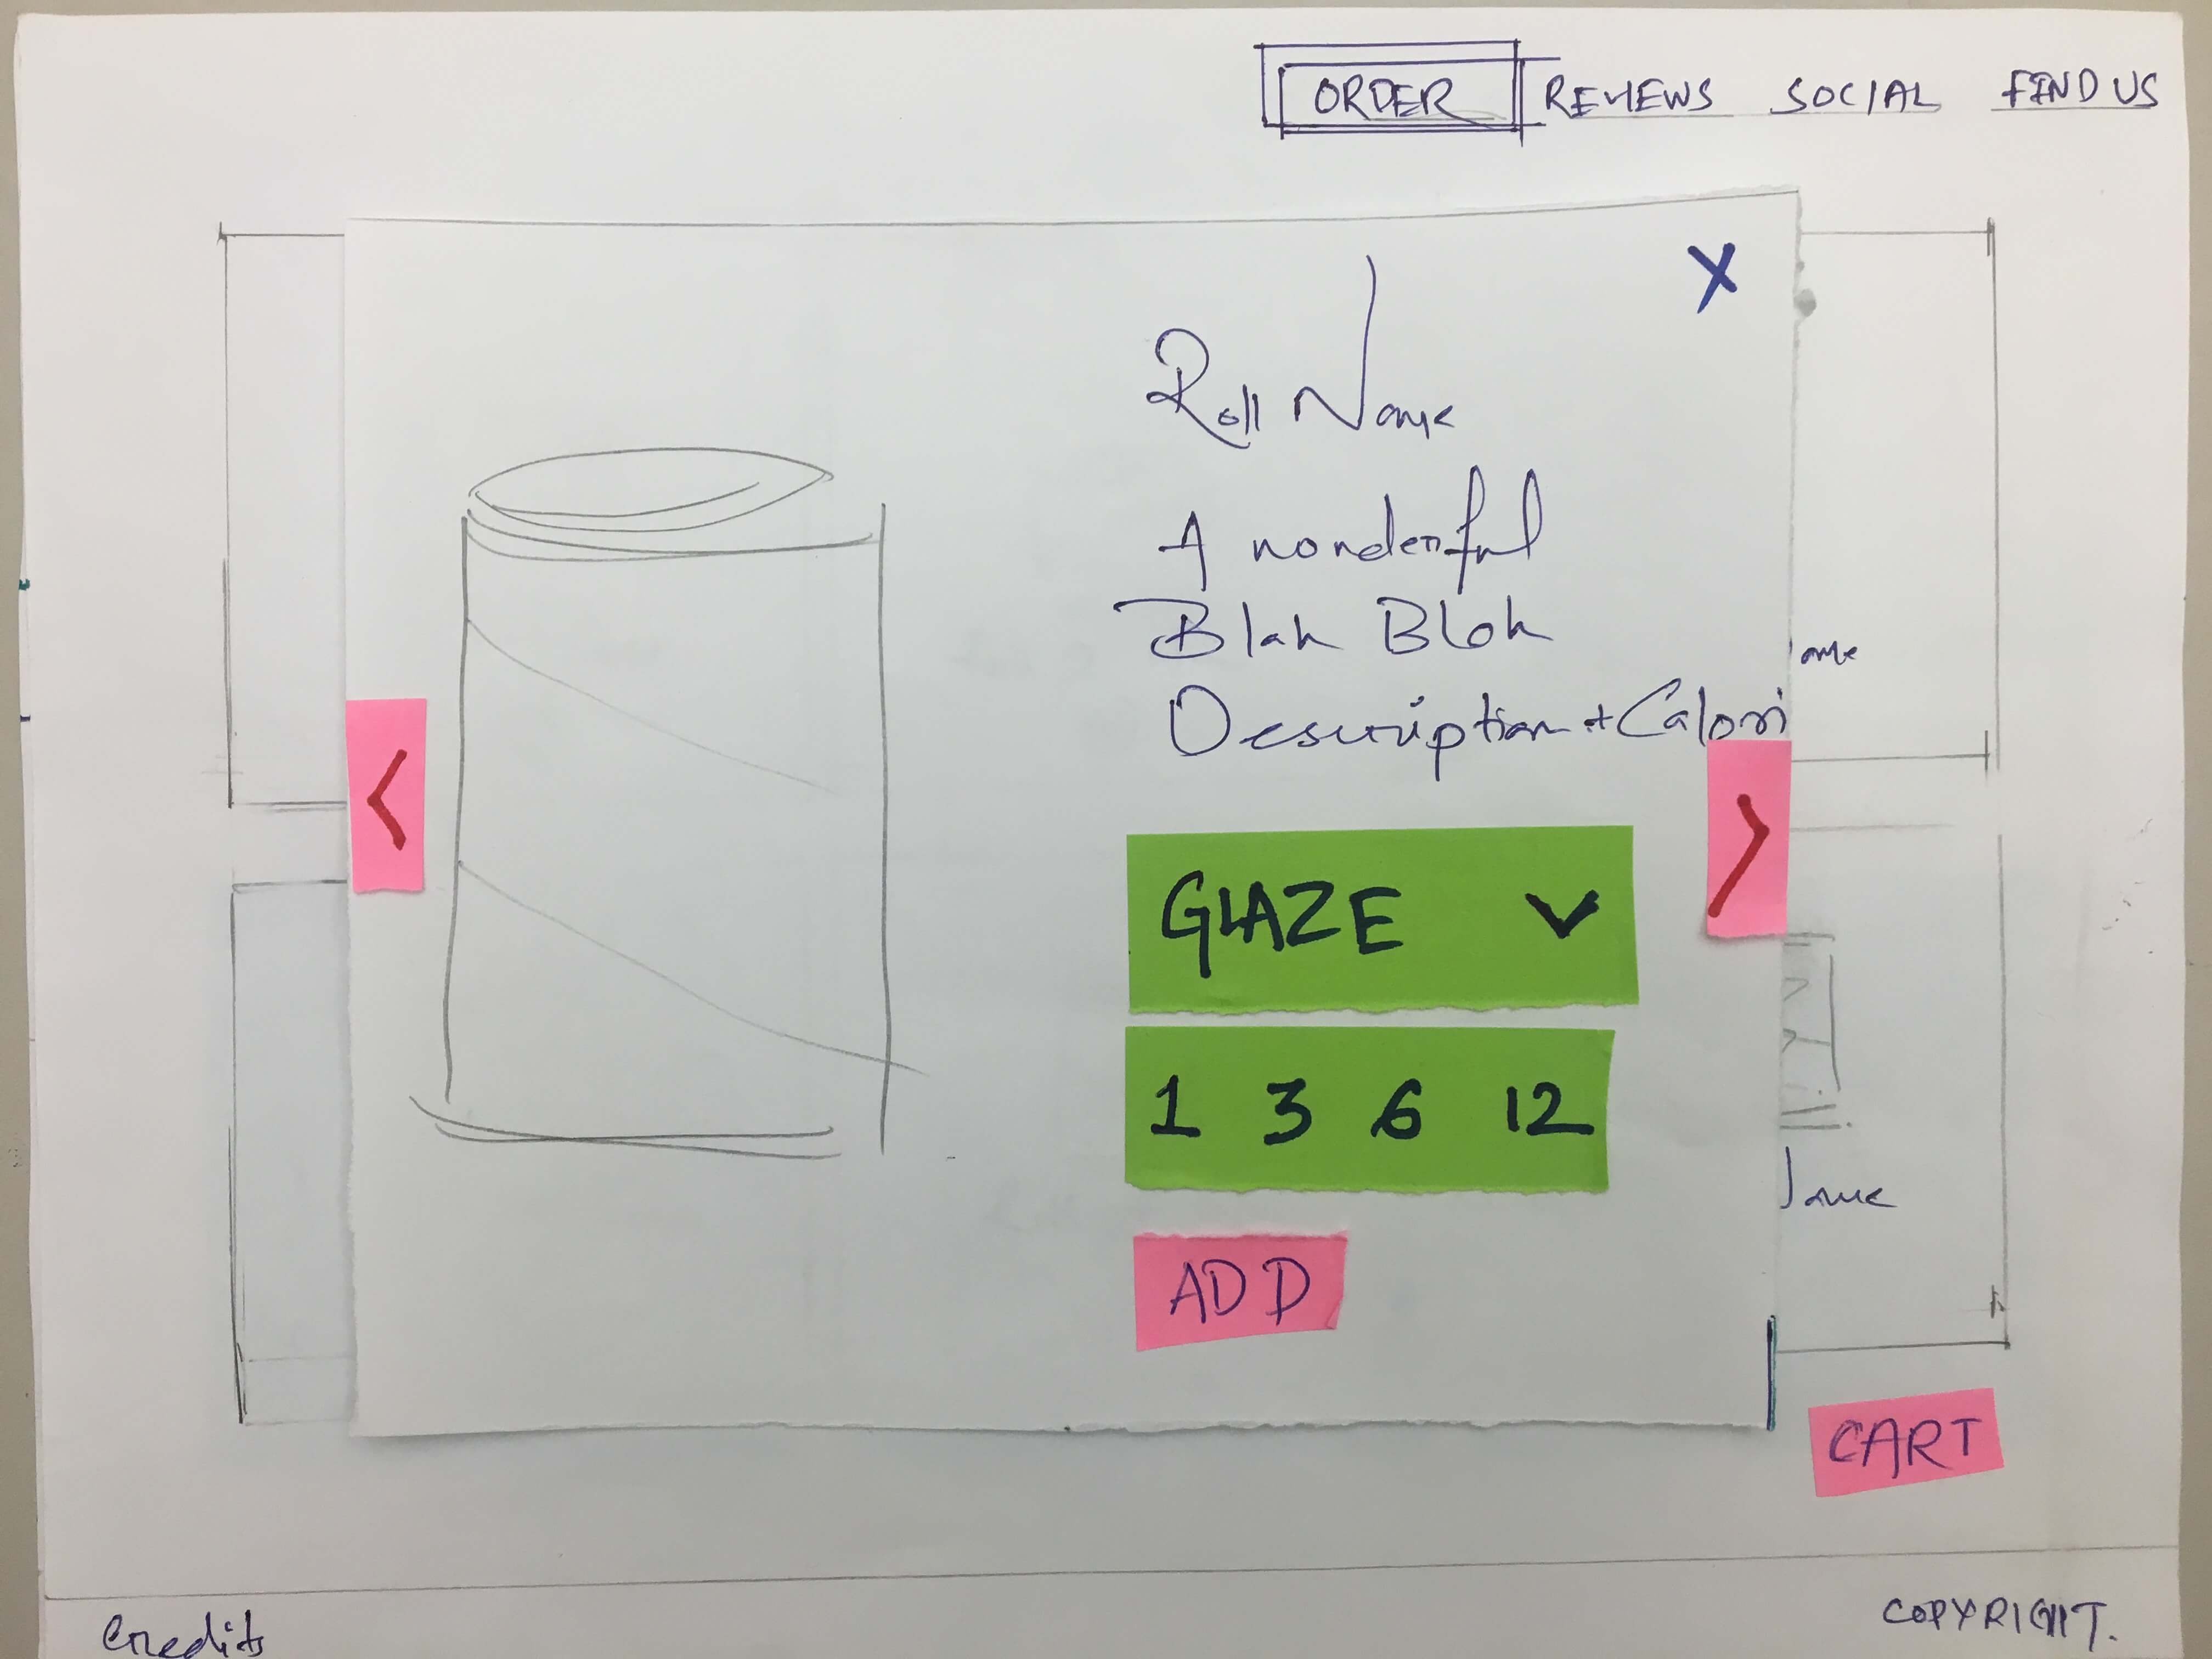 ORDER REVIEWS SOCIAL FIND US
X
Roll Name
A wonderful
Blah Blah
Description + Calori
ame
< >
GLAZE
1 3 6 12
ame
ADD
CART
Credits COPYRIGHT.